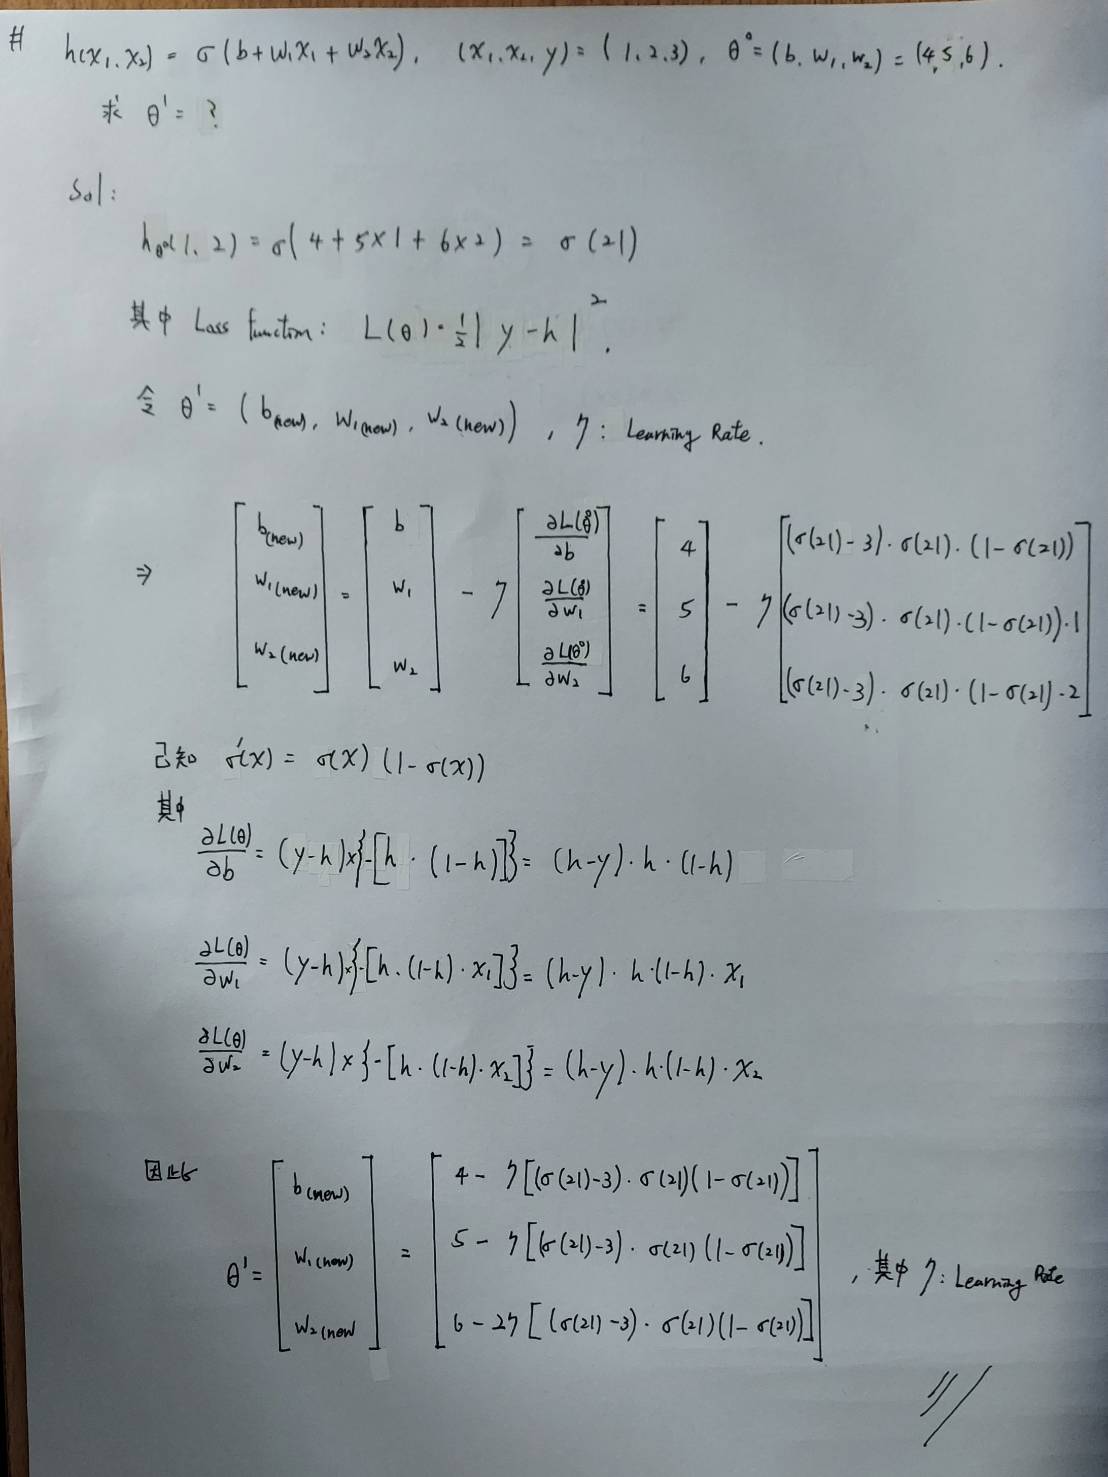 # h(x₁, x₂) = σ(b + w₁x₁ + w₂x₂), (x₁, x₂, y) = (1, 2, 3), θ⁰ = (b, w₁, w₂) = (4, 5, 6).
求 θ¹ = ?
Sol:
h_θ⁰(1, 2) = σ(4 + 5×1 + 6×2) = σ(21)
其中 Loss function: L(θ) = ½|y - h|².
令 θ¹ = (b(new), w₁(new), w₂(new)), η: Learning Rate.
⇒ [b(new); w₁(new); w₂(new)] = [b; w₁; w₂] - η [∂L(θ⁰)/∂b; ∂L(θ⁰)/∂w₁; ∂L(θ⁰)/∂w₂] = [4; 5; 6] - η [(σ(21)-3)·σ(21)·(1-σ(21)); (σ(21)-3)·σ(21)·(1-σ(21))·1; (σ(21)-3)·σ(21)·(1-σ(21)·2]
已知 σ'(x) = σ(x)(1-σ(x))
其中
∂L(θ)/∂b = (y-h)×{-[h·(1-h)]} = (h-y)·h·(1-h)
∂L(θ)/∂w₁ = (y-h)×{-[h·(1-h)·x₁]} = (h-y)·h·(1-h)·x₁
∂L(θ)/∂w₂ = (y-h)×{-[h·(1-h)·x₂]} = (h-y)·h·(1-h)·x₂
因此 θ¹ = [b(new); w₁(new); w₂(new] = [4 - η[(σ(21)-3)·σ(21)(1-σ(21))]; 5 - η[(σ(21)-3)·σ(21)(1-σ(21))]; 6 - 2η[(σ(21)-3)·σ(21)(1-σ(21))]], 其中 η: Learning Rate